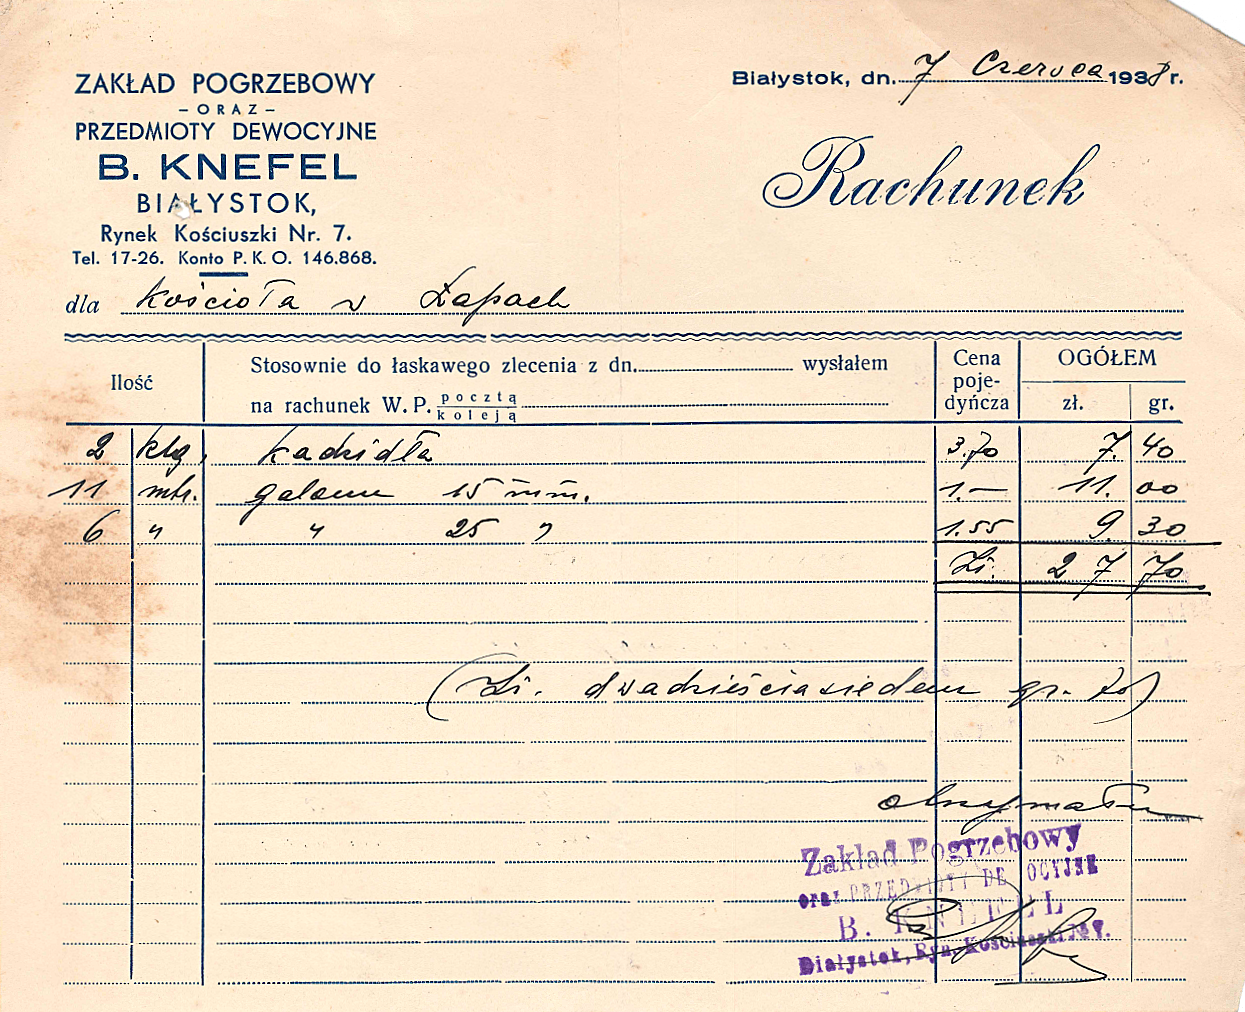 ZAKŁAD POGRZEBOWY
- ORAZ -
PRZEDMIOTY DEWOCYJNE
B. KNEFEL
BIAŁYSTOK,
Rynek Kościuszki Nr. 7.
Tel. 17-26. Konto P.K.O. 146.868.
Białystok, dn. 7 Czerwca 1938 r.
Rachunek
dla Kościoła w Łapach
Ilość
Stosownie do łaskawego zlecenia z dn. wysłałem
na rachunek W. P. pocztą koleją
Cena poje-dyńcza
OGÓŁEM
zł. gr.
2 klg. kadzidła 3.70 7. 40
11 mtr. galonu 15 m/m. 1.— 11. 00
6 " " 25 " 1.55 9. 30
Zł. 27 70
(Zł. dwadzieściasiedem gr. 70)
otrzymałem
Zakład Pogrzebowy
oraz PRZEDMIOTY DEWOCYJNE
B. KNEFEL
Białystok, Ryn. Kościuszki № 7.